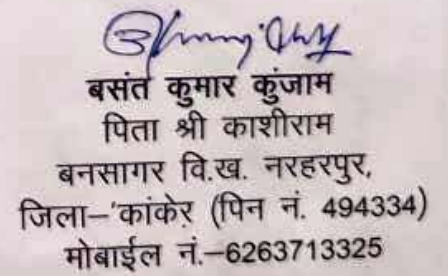 बसंत कुमार कुंजाम
पिता श्री काशीराम
बनसागर वि.ख. नरहरपुर,
जिला–'कांकेर (पिन नं. 494334)
मोबाईल नं.–6263713325